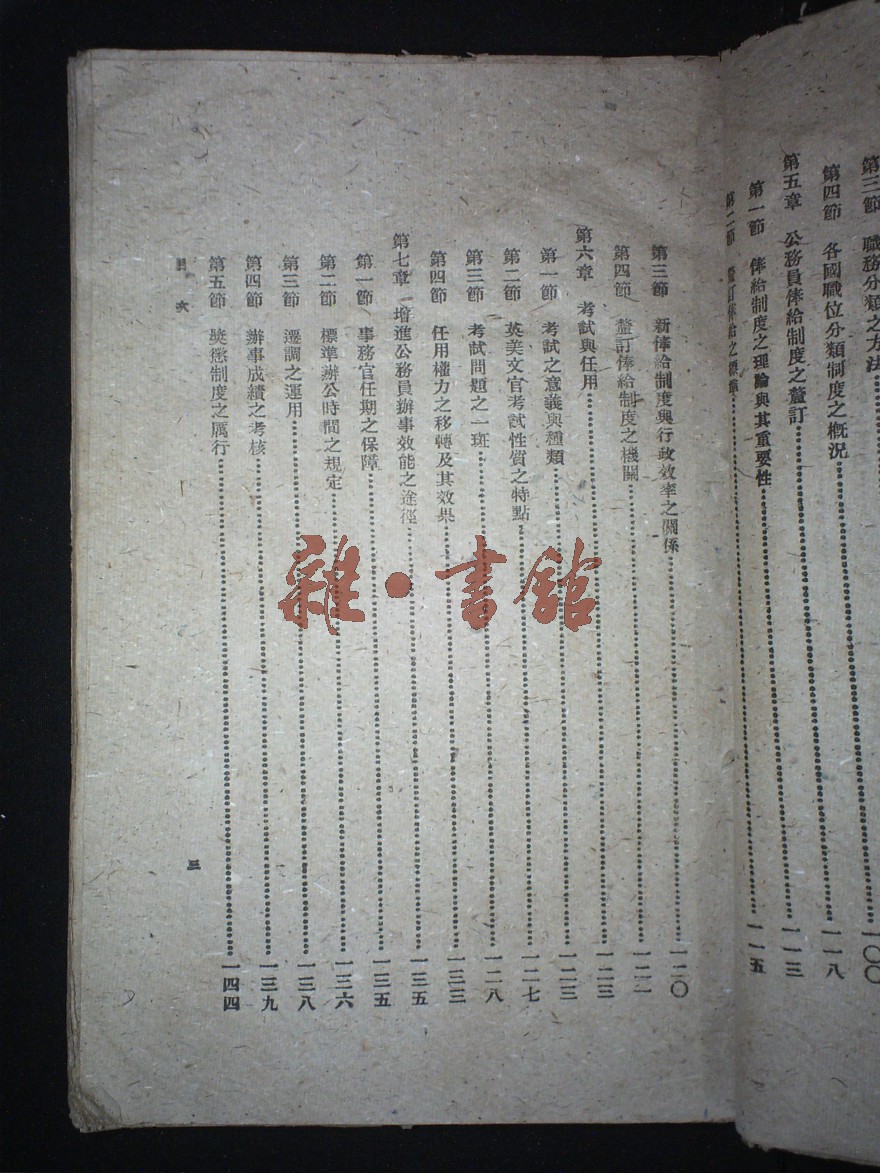 第三節 職務分類之方法……一〇〇
第四節 各國職位分類制度之概況……一一八
第五章 公務員俸給制度之釐訂……一一三
第一節 俸給制度之理論與其重要性……一一五
第二節 釐訂俸給之標準……
第三節 新俸給制度與行政效率之關係……一二〇
第四節 釐訂俸給制度之機關……一二一
第六章 考試與任用……一二三
第一節 考試之意義與種類……一二三
第二節 英美文官考試性質之特點……一二七
第三節 考試問題之一斑……一二八
第四節 任用權力之移轉及其效果……一三三
第七章 增進公務員辦事效能之途徑……一三五
第一節 事務官任期之保障……一三五
第二節 標準辦公時間之規定……一三六
第三節 遷調之運用……一三八
第四節 辦事成績之考核……一三九
第五節 奬懲制度之厲行……一四四
目次
三
雜·書館